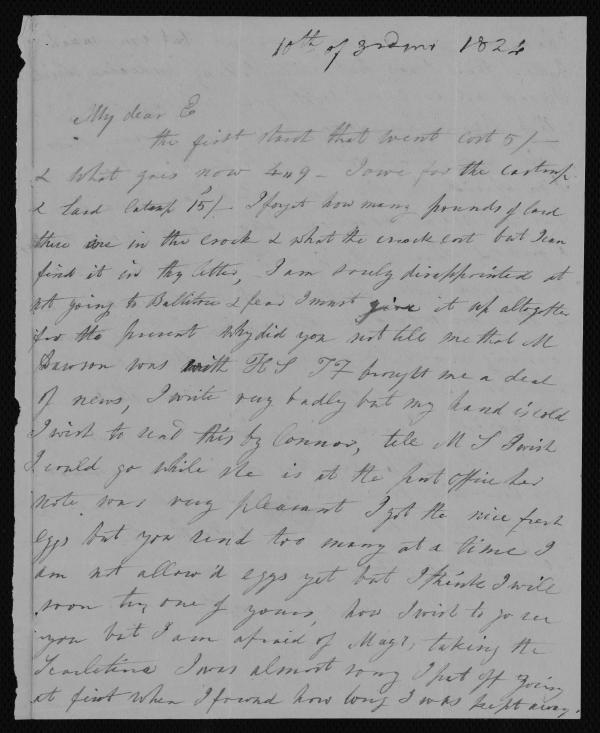 10th of 3rd mo 1824
My dear E
the first starch that went cost 5/-
& what goes now 4 . 9 - I owe for the
& lard 15/- I forget how many pounds of lard
there are in the crock & what the crock cost but I can
find it in thy letter, I am sorely disappointed at
not going to Ballitore & fear I must give it up altogether
for the present why did you not tell me that M
Dawson was with H S T F brought me a deal
of news, I write very badly but my hand is cold
I wish to send this by Connor, tell M S I wish
I could go while she is at the post office her
note was very pleasant I got the nice fresh
eggs but you send too many at a time I
am not allow'd eggs yet but I think I will
soon try one of yours, how I wish to go see
you but I am afraid of Magt. taking the
Scarletina I was almost sorry I put off going
at first when I found how long I was kept away.